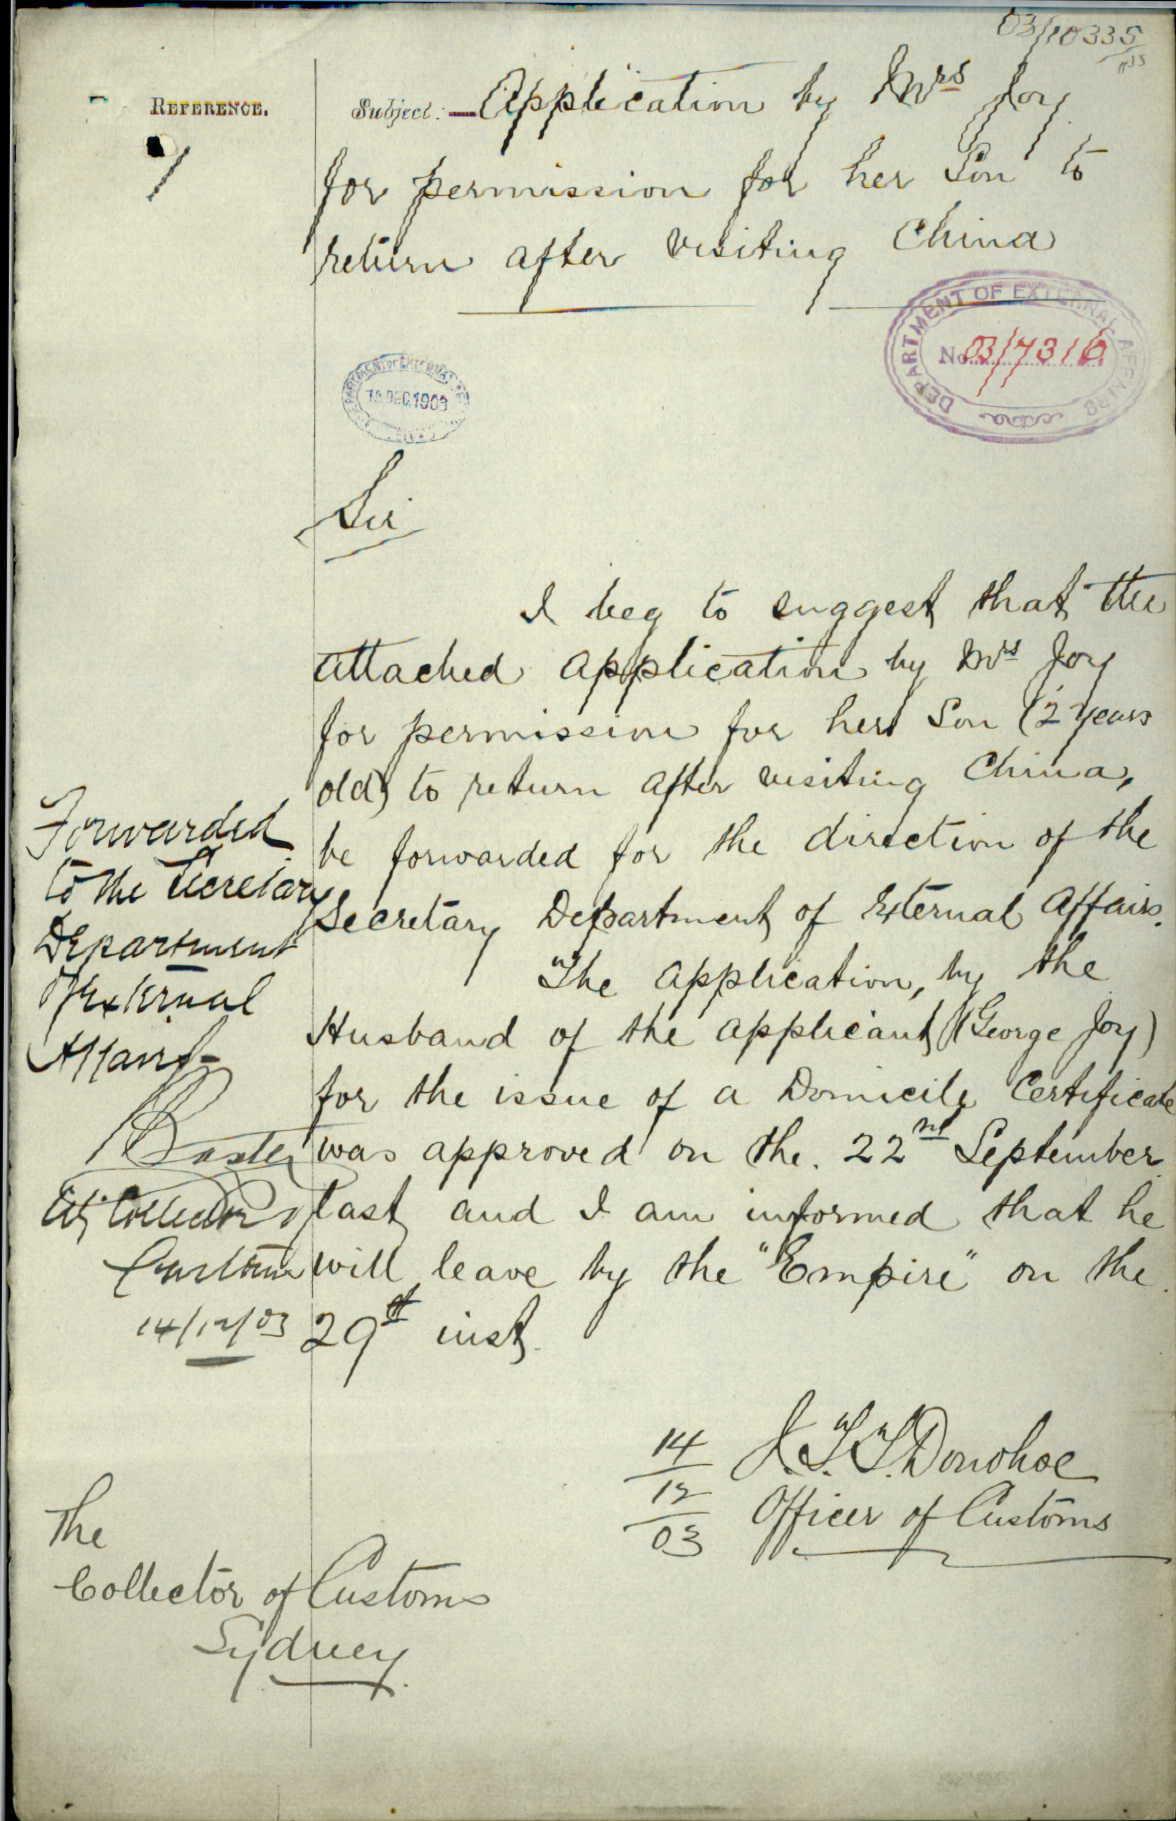 03/10335
REFERENCE.
Subject:— Application by Mrs Joy
for permission for her Son to
return after visiting China
DEPARTMENT OF EXTERNAL AFFAIRS
No. 03/7316
DEC. 1903
Sir
I beg to suggest that the
attached application by Mrs Joy
for permission for her Son (2 years
old) to return after visiting China,
be forwarded for the direction of the
Secretary Department of External Affairs.
The application, by the
Husband of the applicant (George Joy)
for the issue of a Domicile Certificate
was approved on the. 22nd September
last and I am informed that he
will leave by the "Empire" on the
29th inst.
Forwarded
to the Secretary
Department
of External
Affairs
Baxter
Collector of
Customs
14/12/03
14
12
03
J. T. T. Donohoe
Officer of Customs
The
Collector of Customs
Sydney